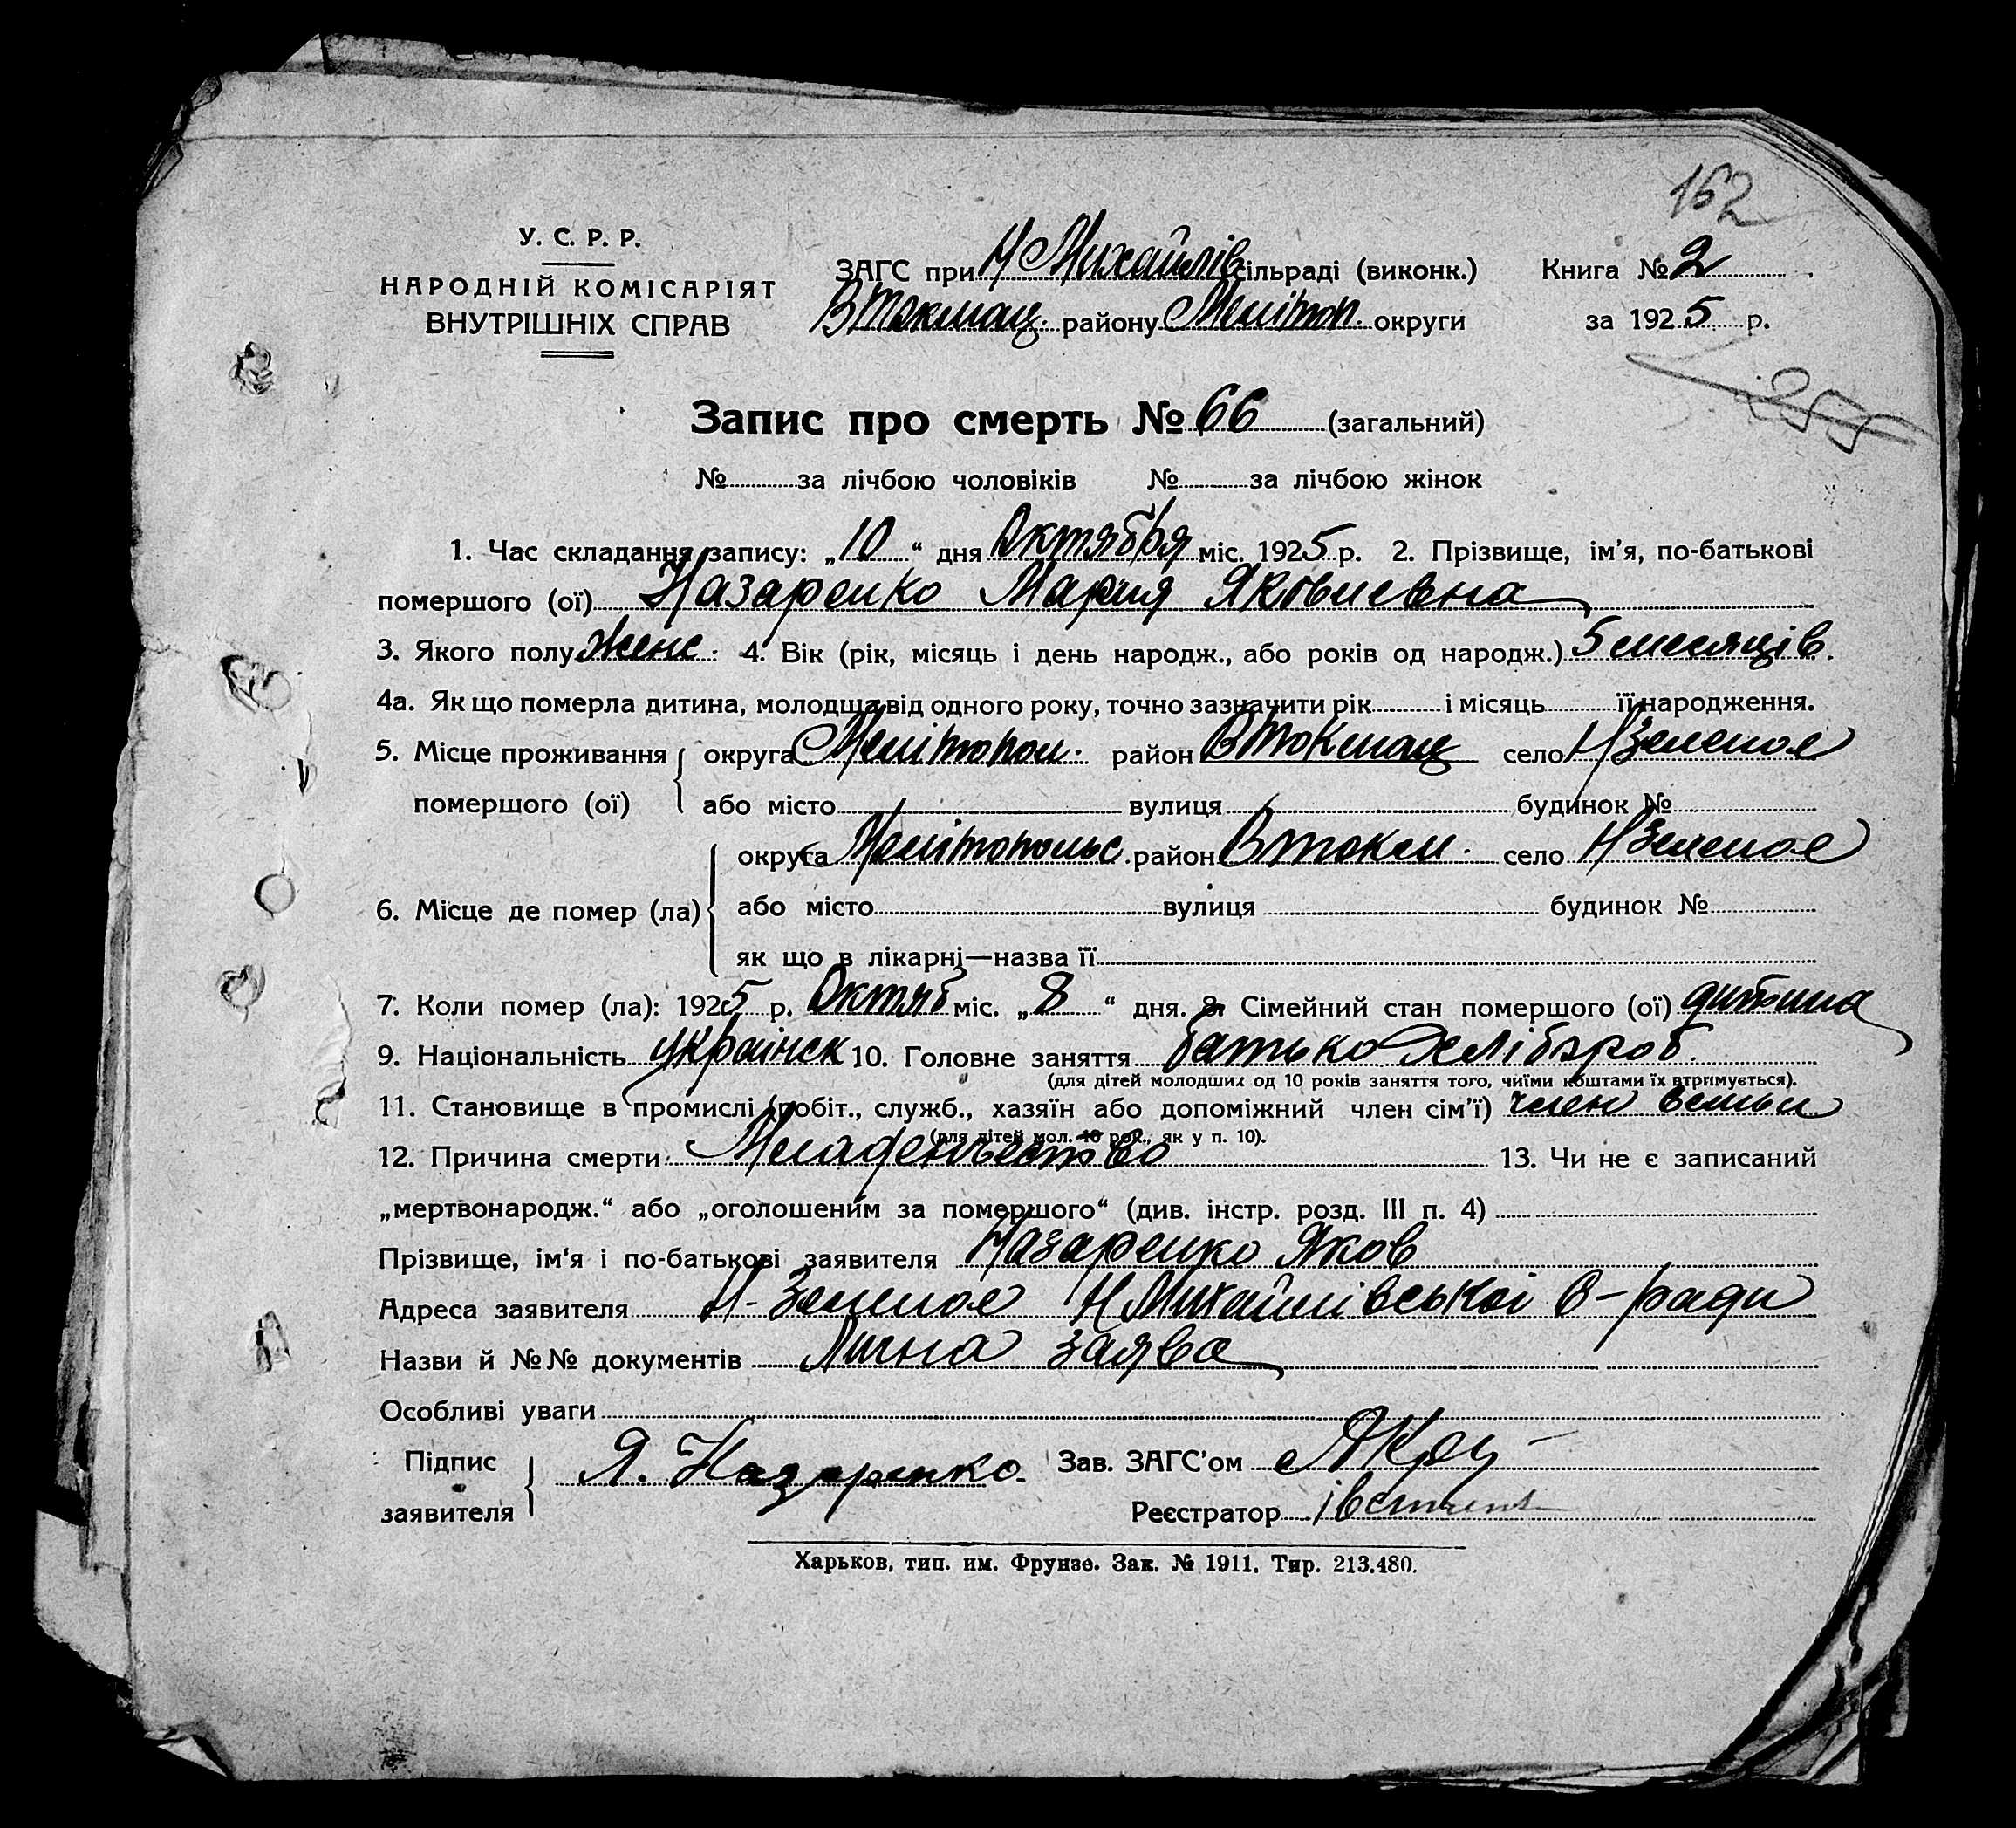 162
У. С. Р. Р.
НАРОДНІЙ КОМІСАРІЯТ
ВНУТРІШНІХ СПРАВ
ЗАГС при Н Михайлів сільраді (виконк.)
В Токмац. району Мелітоп. округи
Книга № 2
за 1925 р.
255
Запис про смерть № 66 (загальний)
№ за лічбою чоловіків № за лічбою жінок
1. Час складання запису: „10“ дня Октября міс. 1925 р. 2. Прізвище, ім’я, по-батькові
помершого (ої) Назаренко Мария Яковлевна
3. Якого полу Женс: 4. Вік (рік, місяць і день народж., або років од народж.) 5 месяців.
4а. Як що померла дитина, молодша від одного року, точно зазначити рік і місяць її народження.
5. Місце проживання округа Мелітопол. район В Токмац село Н Зеленое
помершого (ої) або місто вулиця будинок №
округа Мелітопольс. район В токм. село Н Зеленое
6. Місце де помер (ла) або місто вулиця будинок №
як що в лікарні—назва її
7. Коли помер (ла): 1925 р. Октяб міс. „8“ дня. 8. Сімейний стан помершого (ої) дитина
9. Національність українск 10. Головне заняття батько Хлібороб.
(для дітей молодших од 10 років заняття того, чиїми коштами їх втримується).
11. Становище в промислі (робіт., служб., хазяїн або допоміжний член сім’ї) член
(для дітей мол. 10 рок., як у п. 10).
12. Причина смерти Младенчество 13. Чи не є записаний
„мертвонародж.“ або „оголошеним за помершого“ (див. інстр. розд. III п. 4)
Прізвище, ім‘я і по-батькові заявителя Назаренко Яков
Адреса заявителя Н-Зеленое Н Михайлівської С-ради
Назви й №№ документів Лична заява
Особливі уваги
Підпис
заявителя Я. Назаренко.
Зав. ЗАГС’ом
Реєстратор
Харьков, тип. им. Фрунзе. Зак. № 1911. Тир. 213.480.